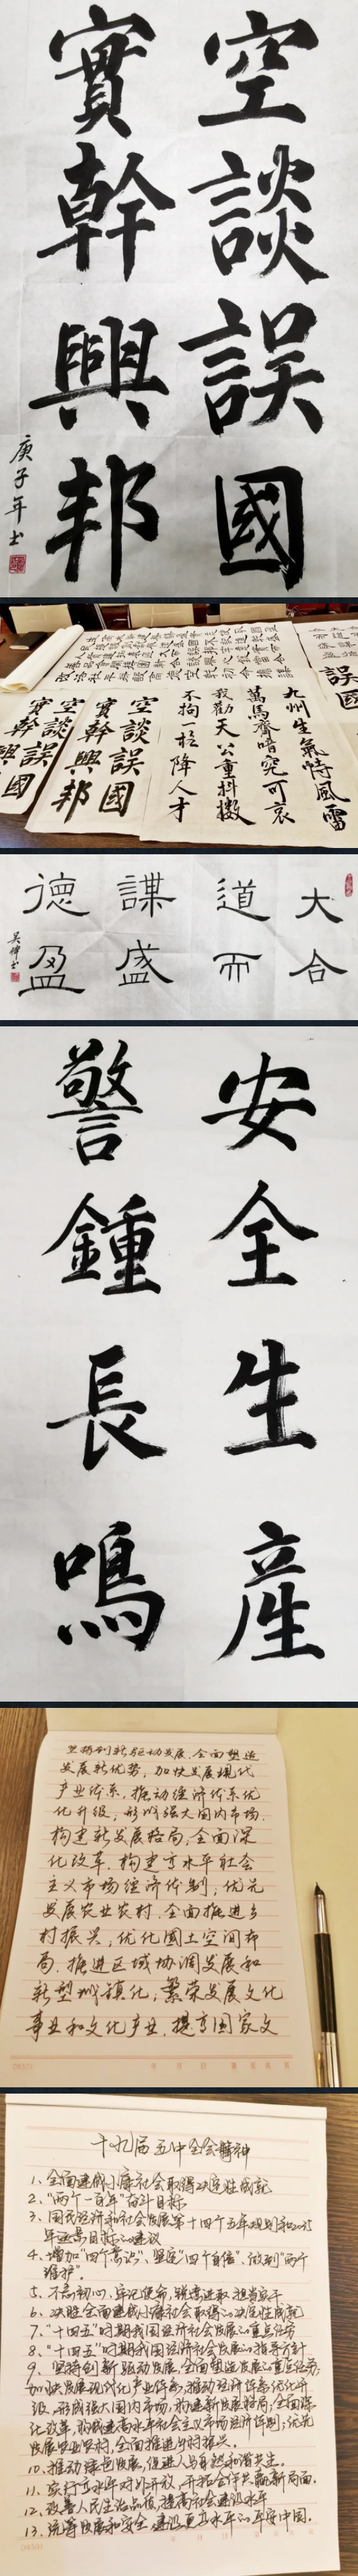 空談誤國
實幹興邦
庚子年士
九州生氣恃風雷
萬馬齊喑究可哀
我勸天公重抖擻
不拘一格降人才
空談誤國
實幹興邦
空談誤國
實幹興邦
誤國
大合
道而
謀盛
德盈
吴偉书
安全生產
警鐘長鳴
坚持创新驱动发展,全面塑造
发展新优势,加快发展现代
产业体系,推动经济体系优
化升级,形成强大国内市场,
构建新发展格局,全面深
化改革,构建高水平社会
主义市场经济体制,优先
发展农业农村,全面推进乡
村振兴,优化国土空间布
局,推进区域协调发展和
新型城镇化,繁荣发展文化
事业和文化产业,提高国家文
十九届五中全会精神
1、全面建成小康社会取得决定性成就
2、"两个一百年"奋斗目标
3、国民经济和社会发展第十四个五年规划和2035
年远景目标的建议
4、增加"四个意识"、坚定"四个自信"、做到"两个
维护"。
5、不忘初心,牢记使命,锐意进取,担当实干
6、决胜全面建成小康社会取得的决定性成就
7、"十四五"时期我国经济社会发展的重点任务
8、"十四五"时期我国经济社会发展的指导方针
9、坚持创新驱动发展,全面塑造发展的重点任务,
加快发展现代化产业体系,推动经济体系优化升
级,形成强大国内市场,构建新发展格局,全面深
化改革,构建高水平社会主义市场经济体制,优先
发展农业农村,全面推进乡村振兴。
10、推动绿色发展,促进人与自然和谐共生。
11、实行高水平对外开放,开拓合作共赢新局面。
12、改善人民生活品质,提高社会建设水平
13、统筹发展和安全,建设更高水平的平安中国。